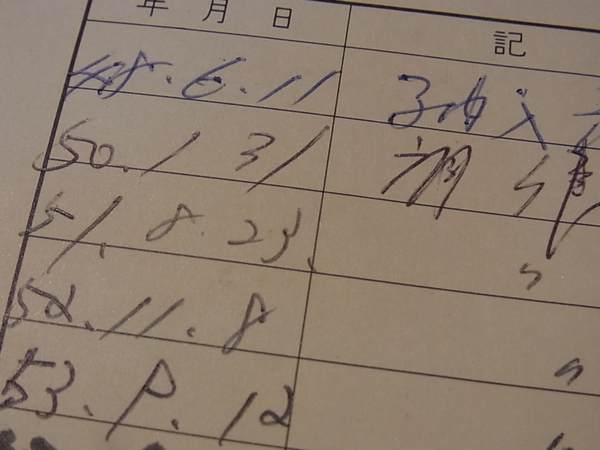 年 月 日 記
48.6.11 納入
50.1 31 調律
51.8.23. 〃
52.11.8 〃
53.9.12